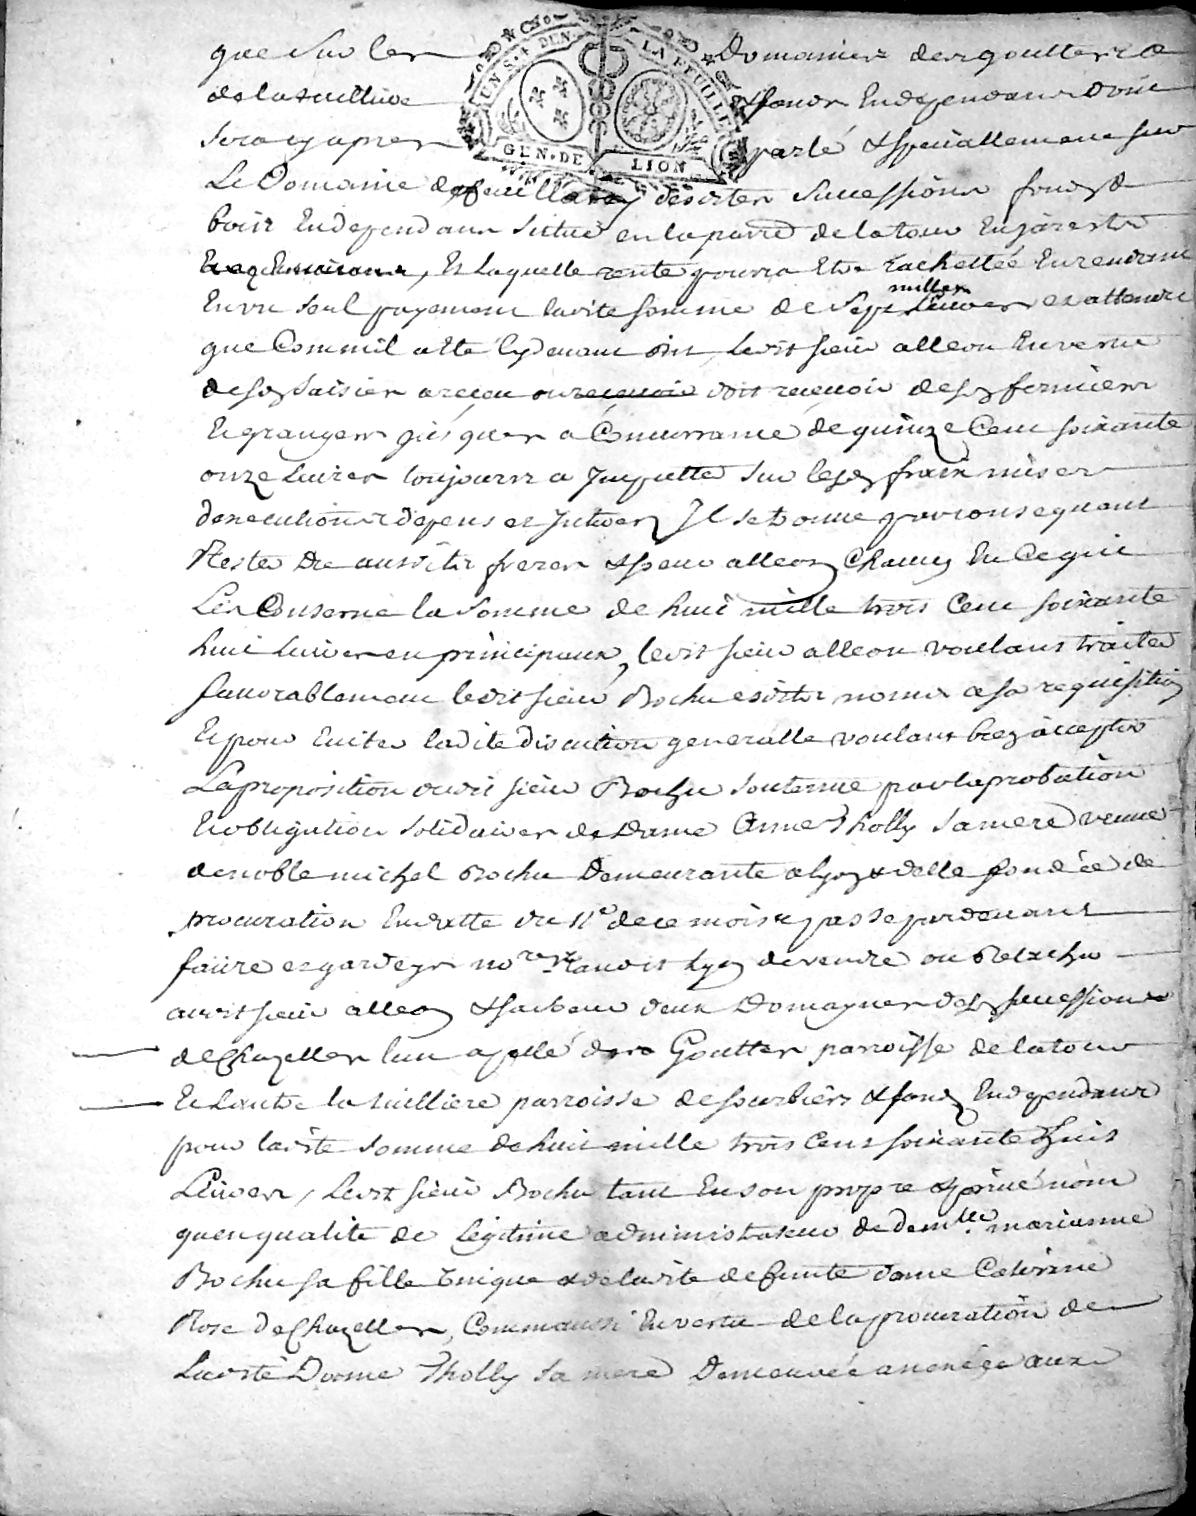 UN S. 4 DEN. LA FEUILLE
GEN. DE LION
que sur les Domaines des goutters &
de la tuilliere & fonds En dependans dont
sera cy apres parlé & speciallement sur
Le Domaine desdites successions fonds &
bois En dependans situé en la parr de la tour En jarests
Et laquelle rente pourra Etre rachettée En rendant
En un seul payement ladite somme de sept milles Livres et attendu
que Comme il a Eté cy devant dit, ledit sieur alleon En vertu
desd saisies a reçeu ou doit reçevoir desd fermiers
Et grangers jusques a Concurrance de quinze Cent soixante
onze Livres toujours a Imputte sur lesd frais mises
d'execution & depens et Il se trouve par consequent
Reste Du auxdits freres & sieur alleon Chacun En Ce qui
Les Conserne la somme de huit mille trois Cent soixante
huit Livres en principaux, ledit sieur alleon voulant traiter
favorablement ledit sieur Bochu esdits noms a sa requisition
Et pour Eviter ladite discution generalle voulant bien accepter
La proposition dudit sieur Bochu soutenue par laprobation
Et obligation solidaires de Dame Anne Tholly sa mere veuve
de noble michel Bochu Demeurante a lyon & delle fondée de
procuration En datte du 11e de ce mois passe pardevant
faure et son confrere no.res Royaux a Lyon de vendre ou Relacher
audit sieur alleon & sacheur deux Domaynes desd succession
de Chazelles lun apellé des Goutter parroisse de la tour
Et Lautre la tuilliere parroisse de sourbiers & fonds En dependans
pour ladite somme de huit mille trois Cent soixante & huit
Livres, Ledit sieur Bochu tant En son propre & privé nom
quen qualité de Legitime administrateur de demlle marianne
Bochu sa fille Unique & de ladite defunte dame Caterine
Rose de Chazelles, Comme aussi En vertu de la procuration de
Ladite Dame Tholly sa mere Demeurée annexée aux